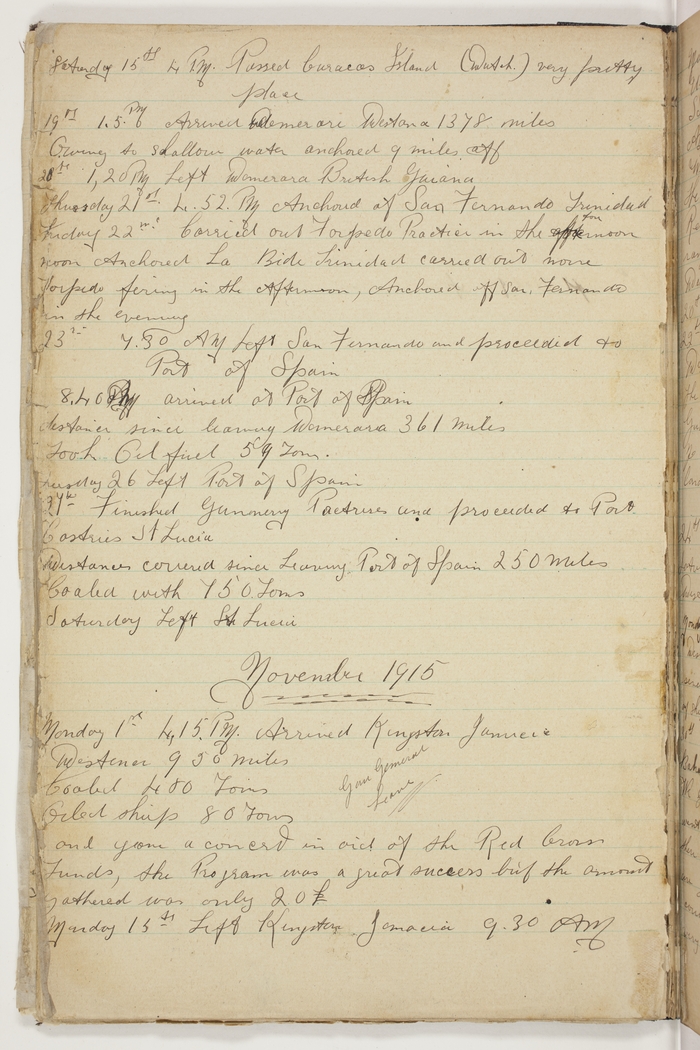 Saturday 15th 4 PM. Passed Curacos Island (Dutch.) very pretty
place
19th 1.5. PM Arrived Demerari Distance 1378 miles
Owing to shallow water anchored 9 miles off
20th 1,20 PM Left Demerara British Guiana
Thursday 21st 4.52. PM Anchored at San Fernando Trinidad
Friday 22nd Carried out Torpedo Practice in the fore
noon Anchored La Bide Trinidad carried out more
Torpedo firing in the Afternoon, Anchored off San. Fernando
in the evening
23rd 7.30 AM Left San Fernando and proceeded to
Port of Spain
8,40 PM arrived at Port of Spain
distance since leaving Demerara 361 miles
Took Oil fuel 59 Tons.
Tuesday 26 Left Port of Spain
27th Finished Gunnery Practises and proceeded to Port.
Castries St Lucia
Distances covered since Leaving Port of Spain 250 miles
Coaled with 750 Tons
Saturday Left St Lucia
November 1915
Monday 1st 4,15. PM. Arrived Kingston Jamacia
Distance 950 miles
Coaled 400 Tons
Gave General
Leave
Oiled ship 80 Tons
and gave a concert in aid of the Red Cross
Funds, the Program was a great success but the amount
gathered was only 20£
Monday 15th Left Kingston Jamacia 9.30 AM